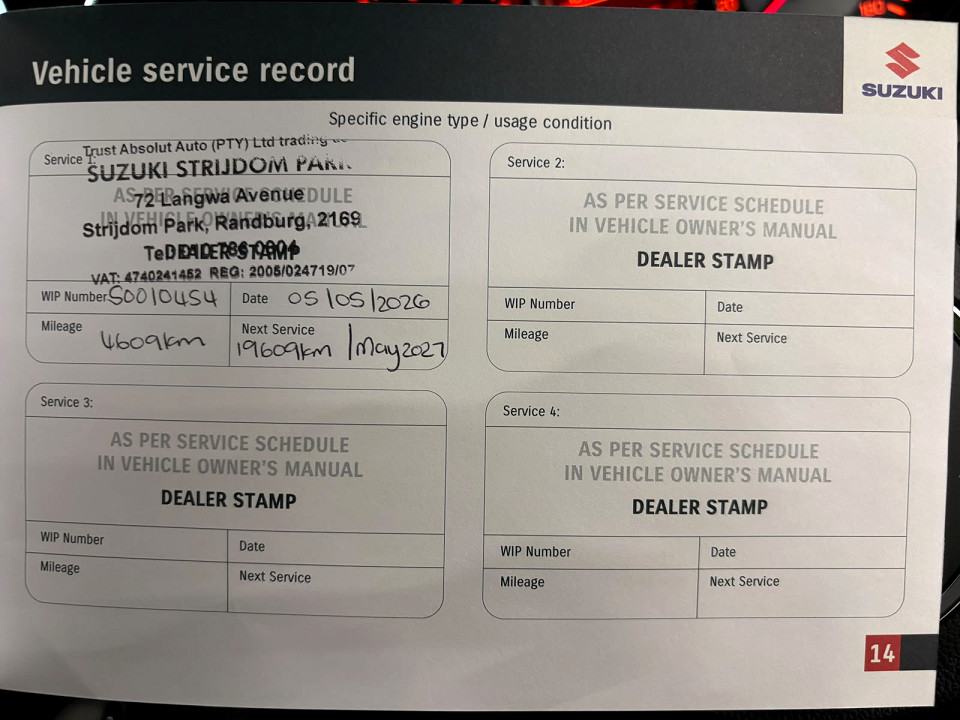 Vehicle service record
SUZUKI
Specific engine type / usage condition
Service 1:
Trust Absolut Auto (PTY) Ltd trading
SUZUKI STRIJDOM PARK
AS PER SERVICE SCHEDULE
72 Langwa Avenue
IN VEHICLE OWNER'S MANUAL
Strijdom Park, Randburg, 2169
DEALER STAMP
VAT: 4740241452 REG: 2005/024719/07
WIP Number S0010454
Date 05/05/2026
Mileage 4609km
Next Service 19609km / May 2027
Service 2:
AS PER SERVICE SCHEDULE
IN VEHICLE OWNER'S MANUAL
DEALER STAMP
WIP Number
Date
Mileage
Next Service
Service 3:
AS PER SERVICE SCHEDULE
IN VEHICLE OWNER'S MANUAL
DEALER STAMP
WIP Number
Date
Mileage
Next Service
Service 4:
AS PER SERVICE SCHEDULE
IN VEHICLE OWNER'S MANUAL
DEALER STAMP
WIP Number
Date
Mileage
Next Service
14